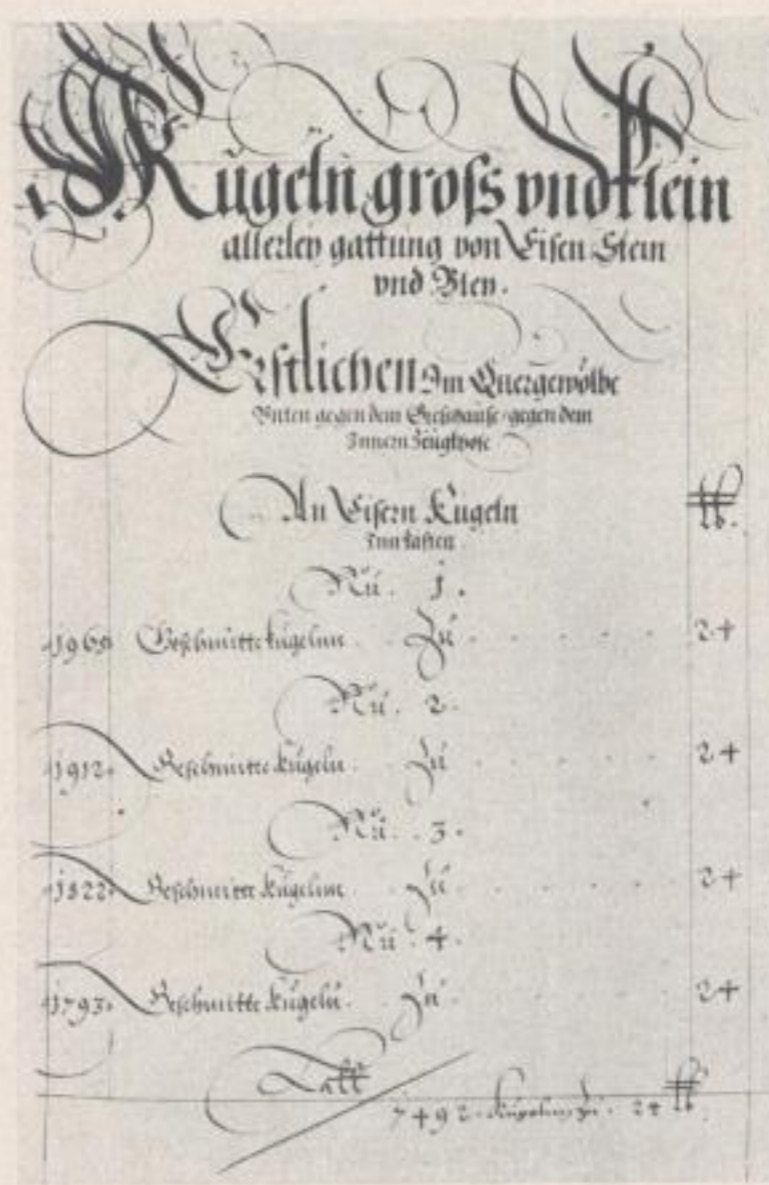 Kugeln gross vnd klein
allerley gattung von Eisen Stein
vnd Bley.
Erstlichen Im Quergewölbe
Vnten gegen dem Gieshause gegen dem
Innern Zeughofe
An Eisern Kugeln lb.
Inn kasten
Nu. 1.
1965 Geschmitte kugelnn Zu 24
Nu. 2.
1912 Geschmitte kugeln Zu 24
Nu. 3.
1822 Geschmitte kugelnn Zu 24
Nu. 4.
1793 Geschmitte kugeln Zu 24
7492 Kugeln Zu 24 lb.